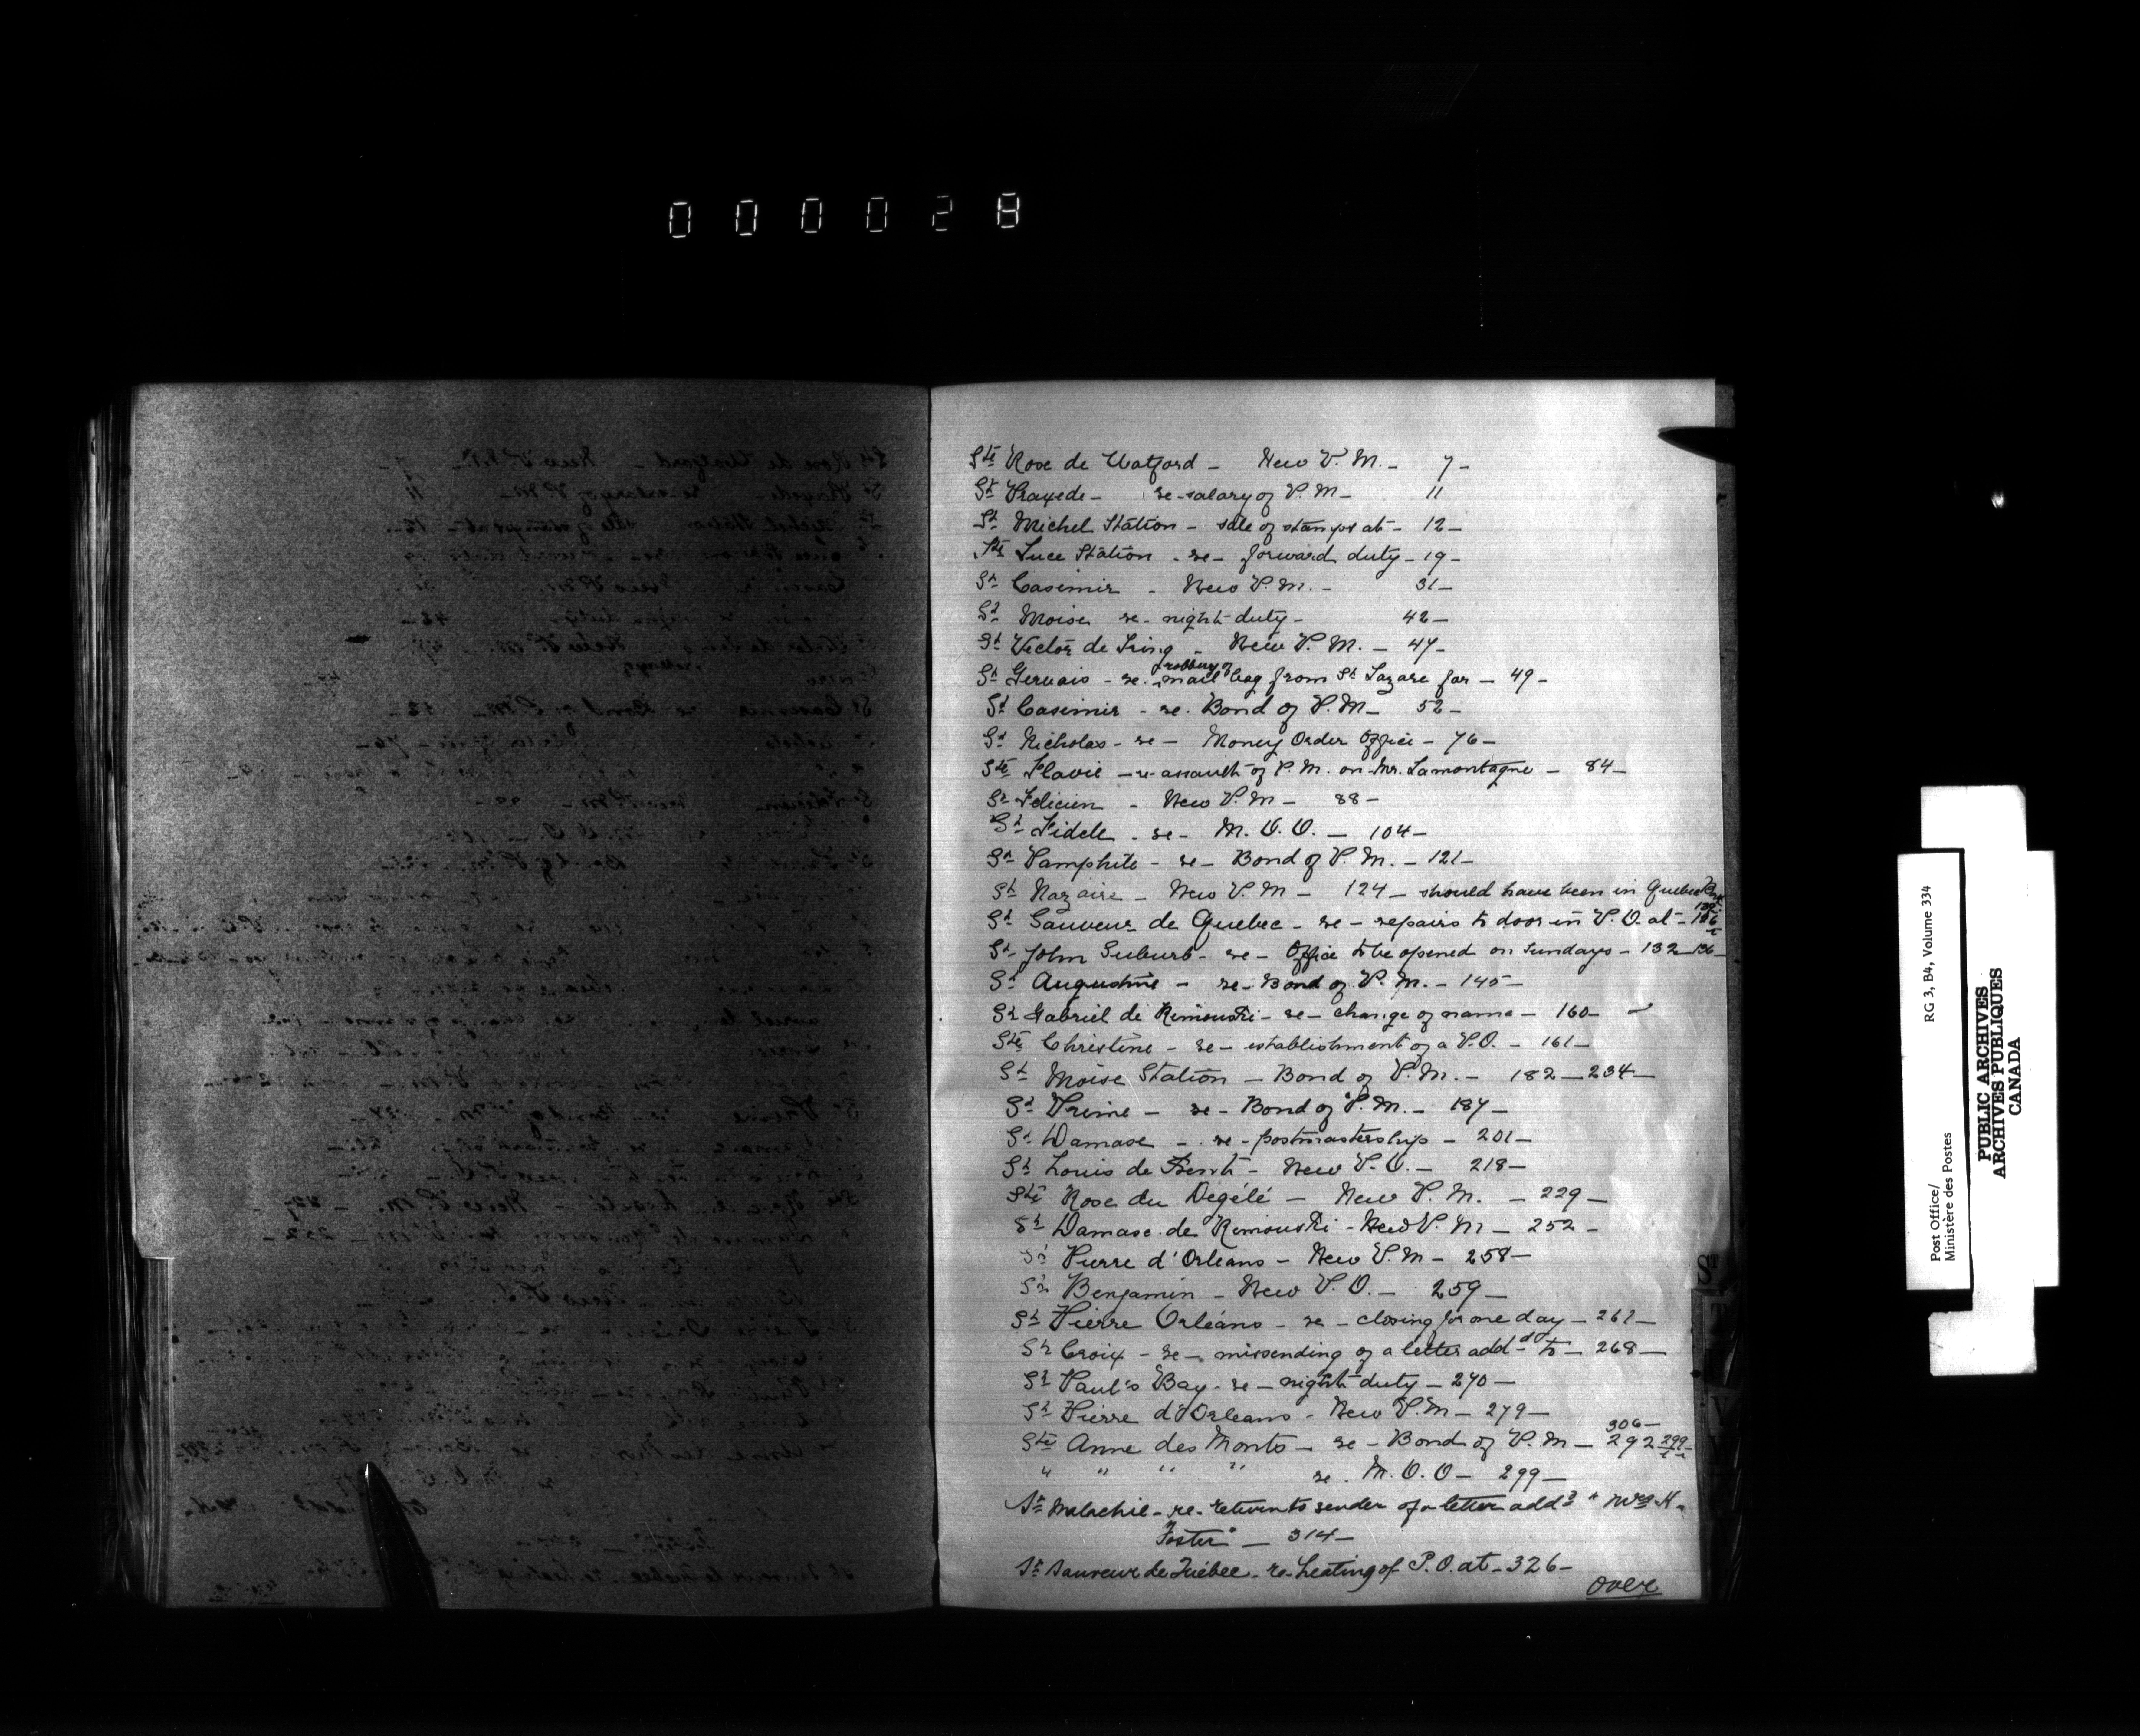 000028
Ste Rose de Watford - New P. M. - 7 -
St Praxede - re - salary of P. M - 11
St Michel Station - sale of stamps at - 12 -
Ste Luce Station - re - forward duty - 19 -
St Casimir - New P. M. - 31 -
St Moise re - night duty - 42 -
St Victor de Tring - New P. M. - 47 -
St Gervais - re. robbery of mail bag from St Lazare for - 49 -
St Casimir - re. Bond of P. M - 52 -
St Nicholas - re - Money Order Office - 76 -
Ste Flavie - re assault of P. M. on Mr. Lamontagne - 84 -
St Felicien - New P. M - 88 -
St Fidele - re - M. O. O. - 104 -
St Pamphile - re - Bond of P. M. - 121 -
St Nazaire - New P. M - 124 - should have been in Quebec
St Sauveur de Quebec - re - repairs to door in P. O. at -
St John Suburb - re - Office to be opened on Sundays - 132 - 136 -
St Augustine - re - Bond of P. M. - 145 -
St Gabriel de Rimouski - re - change of name - 160 -
Ste Christine - re - establishment of a P.O. - 161 -
St Moise Station - Bond of P. M. - 182 - 234 -
St Prime - re - Bond of P. M. - 187 -
St Damase - re - postmastership - 201 -
St Louis de - New P. O. - 218 -
Ste Rose du Degélé - New P. M. - 229 -
St Damase de Rimouski - New P. M - 252 -
St Pierre d'Orleans - New P. M - 258 -
St Benjamin - New P. O. - 259 -
St Pierre Orléans - re - closing for one day - 261 -
St Croix - re - missending of a letter addd to - 268 -
St Paul's Bay - re - night duty - 270 -
St Pierre d'Orleans - New P. M - 279 -
306 -
Ste Anne des Monts - re - Bond of P. M - 292 299
" " " " re. M. O. O - 299 -
St Malachie - re - return to sender of a letter addd " Mrs H.
Foster" - 314 -
St Sauveur de Québec - re - heating of P. O. at - 326 -
over
St
T
V
Post Office/
Ministère des Postes
RG 3, B4, Volume 334
PUBLIC ARCHIVES
ARCHIVES PUBLIQUES
CANADA